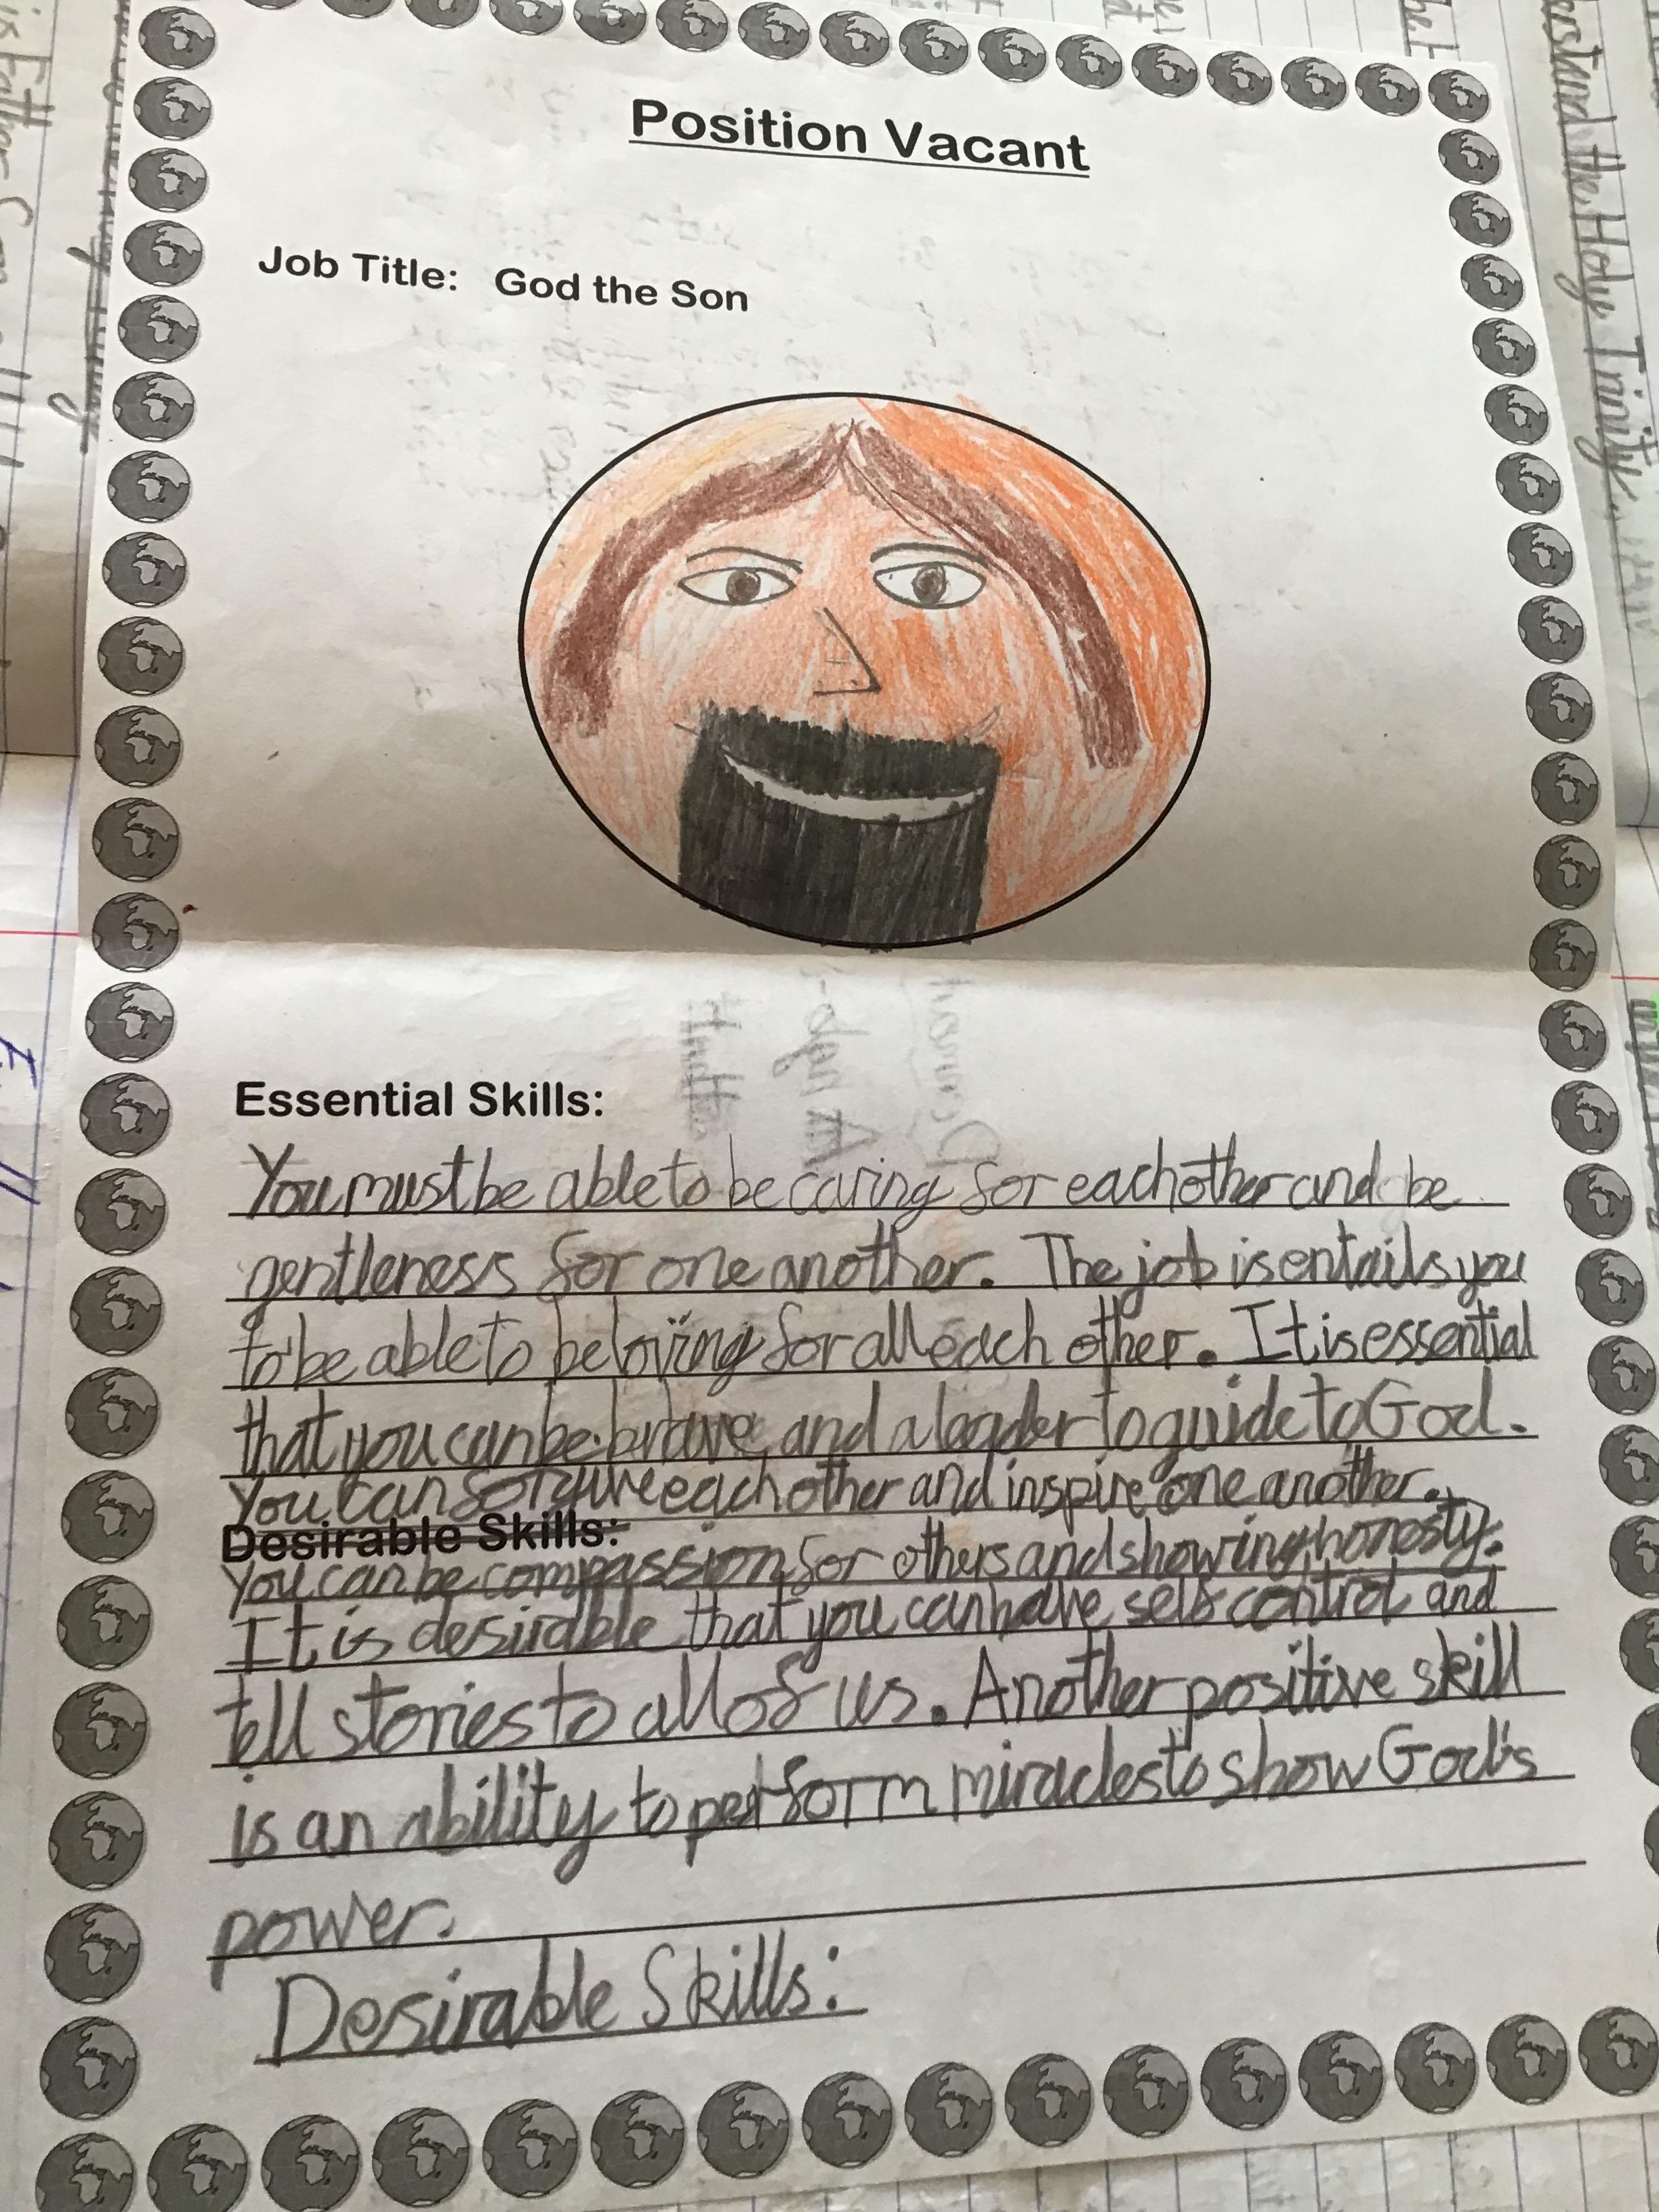 Position Vacant
Job Title: God the Son
Essential Skills:
You must be able to be caring for each other and be
gentleness for one another. The job is entails you
to be able to be loving for all each other. It is essential
that you can be brave and a leader to guide to God.
You can forgive each other and inspire one another.
Desirable Skills:
You can be compassion for others and showing honesty.
It is desirable that you can have self control and
tell stories to all of us. Another positive skill
is an ability to perform miracles to show God's
power.
Desirable Skills:
understand the Holy Trinity